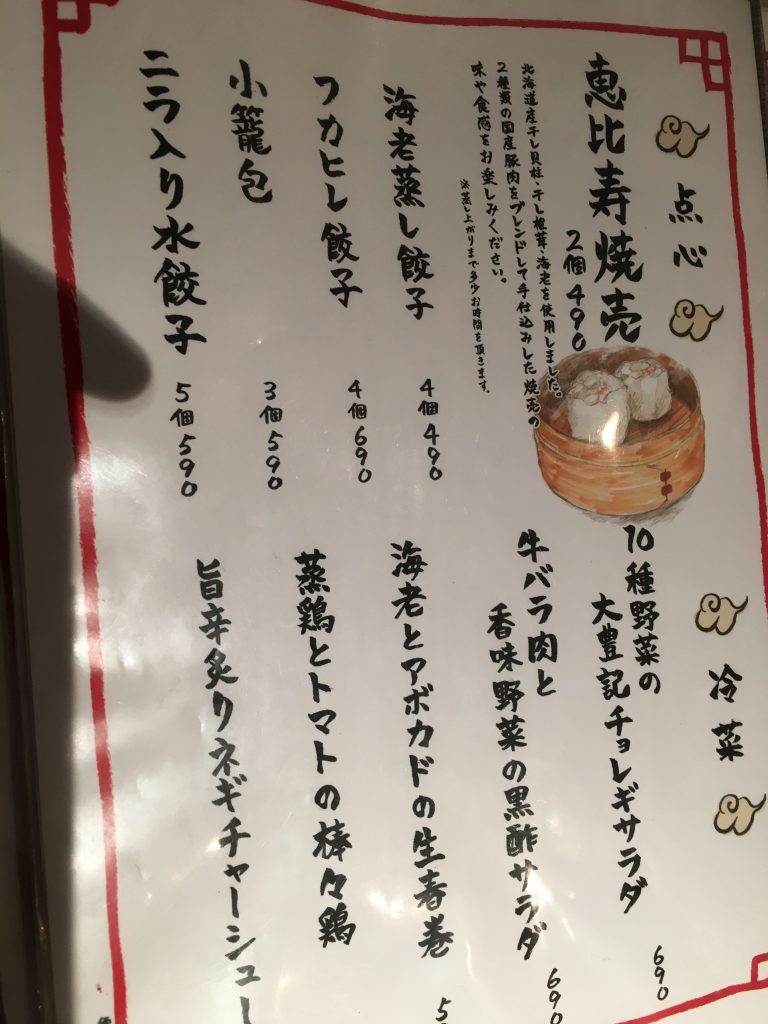 点心
恵比寿焼売
2個490
北海道産干し貝柱・干し椎茸・海老を使用しました。
2種類の国産豚肉をブレンドして手仕込みした焼売の
味や食感をお楽しみください。
※蒸し上がりまで多少お時間を頂きます。
海老蒸し餃子 4個490
フカヒレ餃子 4個690
小籠包 3個590
ニラ入り水餃子 5個590
冷菜
10種野菜の
大豊記チョレギサラダ 690
牛バラ肉と
香味野菜の黒酢サラダ 690
海老とアボカドの生春巻 5
蒸鶏とトマトの棒々鶏
旨辛炙りネギチャーシュー